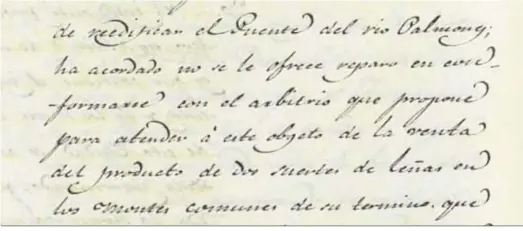 de reedificar el Puente del rio Palmones;
ha acordado no se le ofrece reparo en con-
-formarse con el arbitrio que propone
para atender á este objeto de la venta
del producto de dos suertes de leñas en
los montes comunes de su termino. que